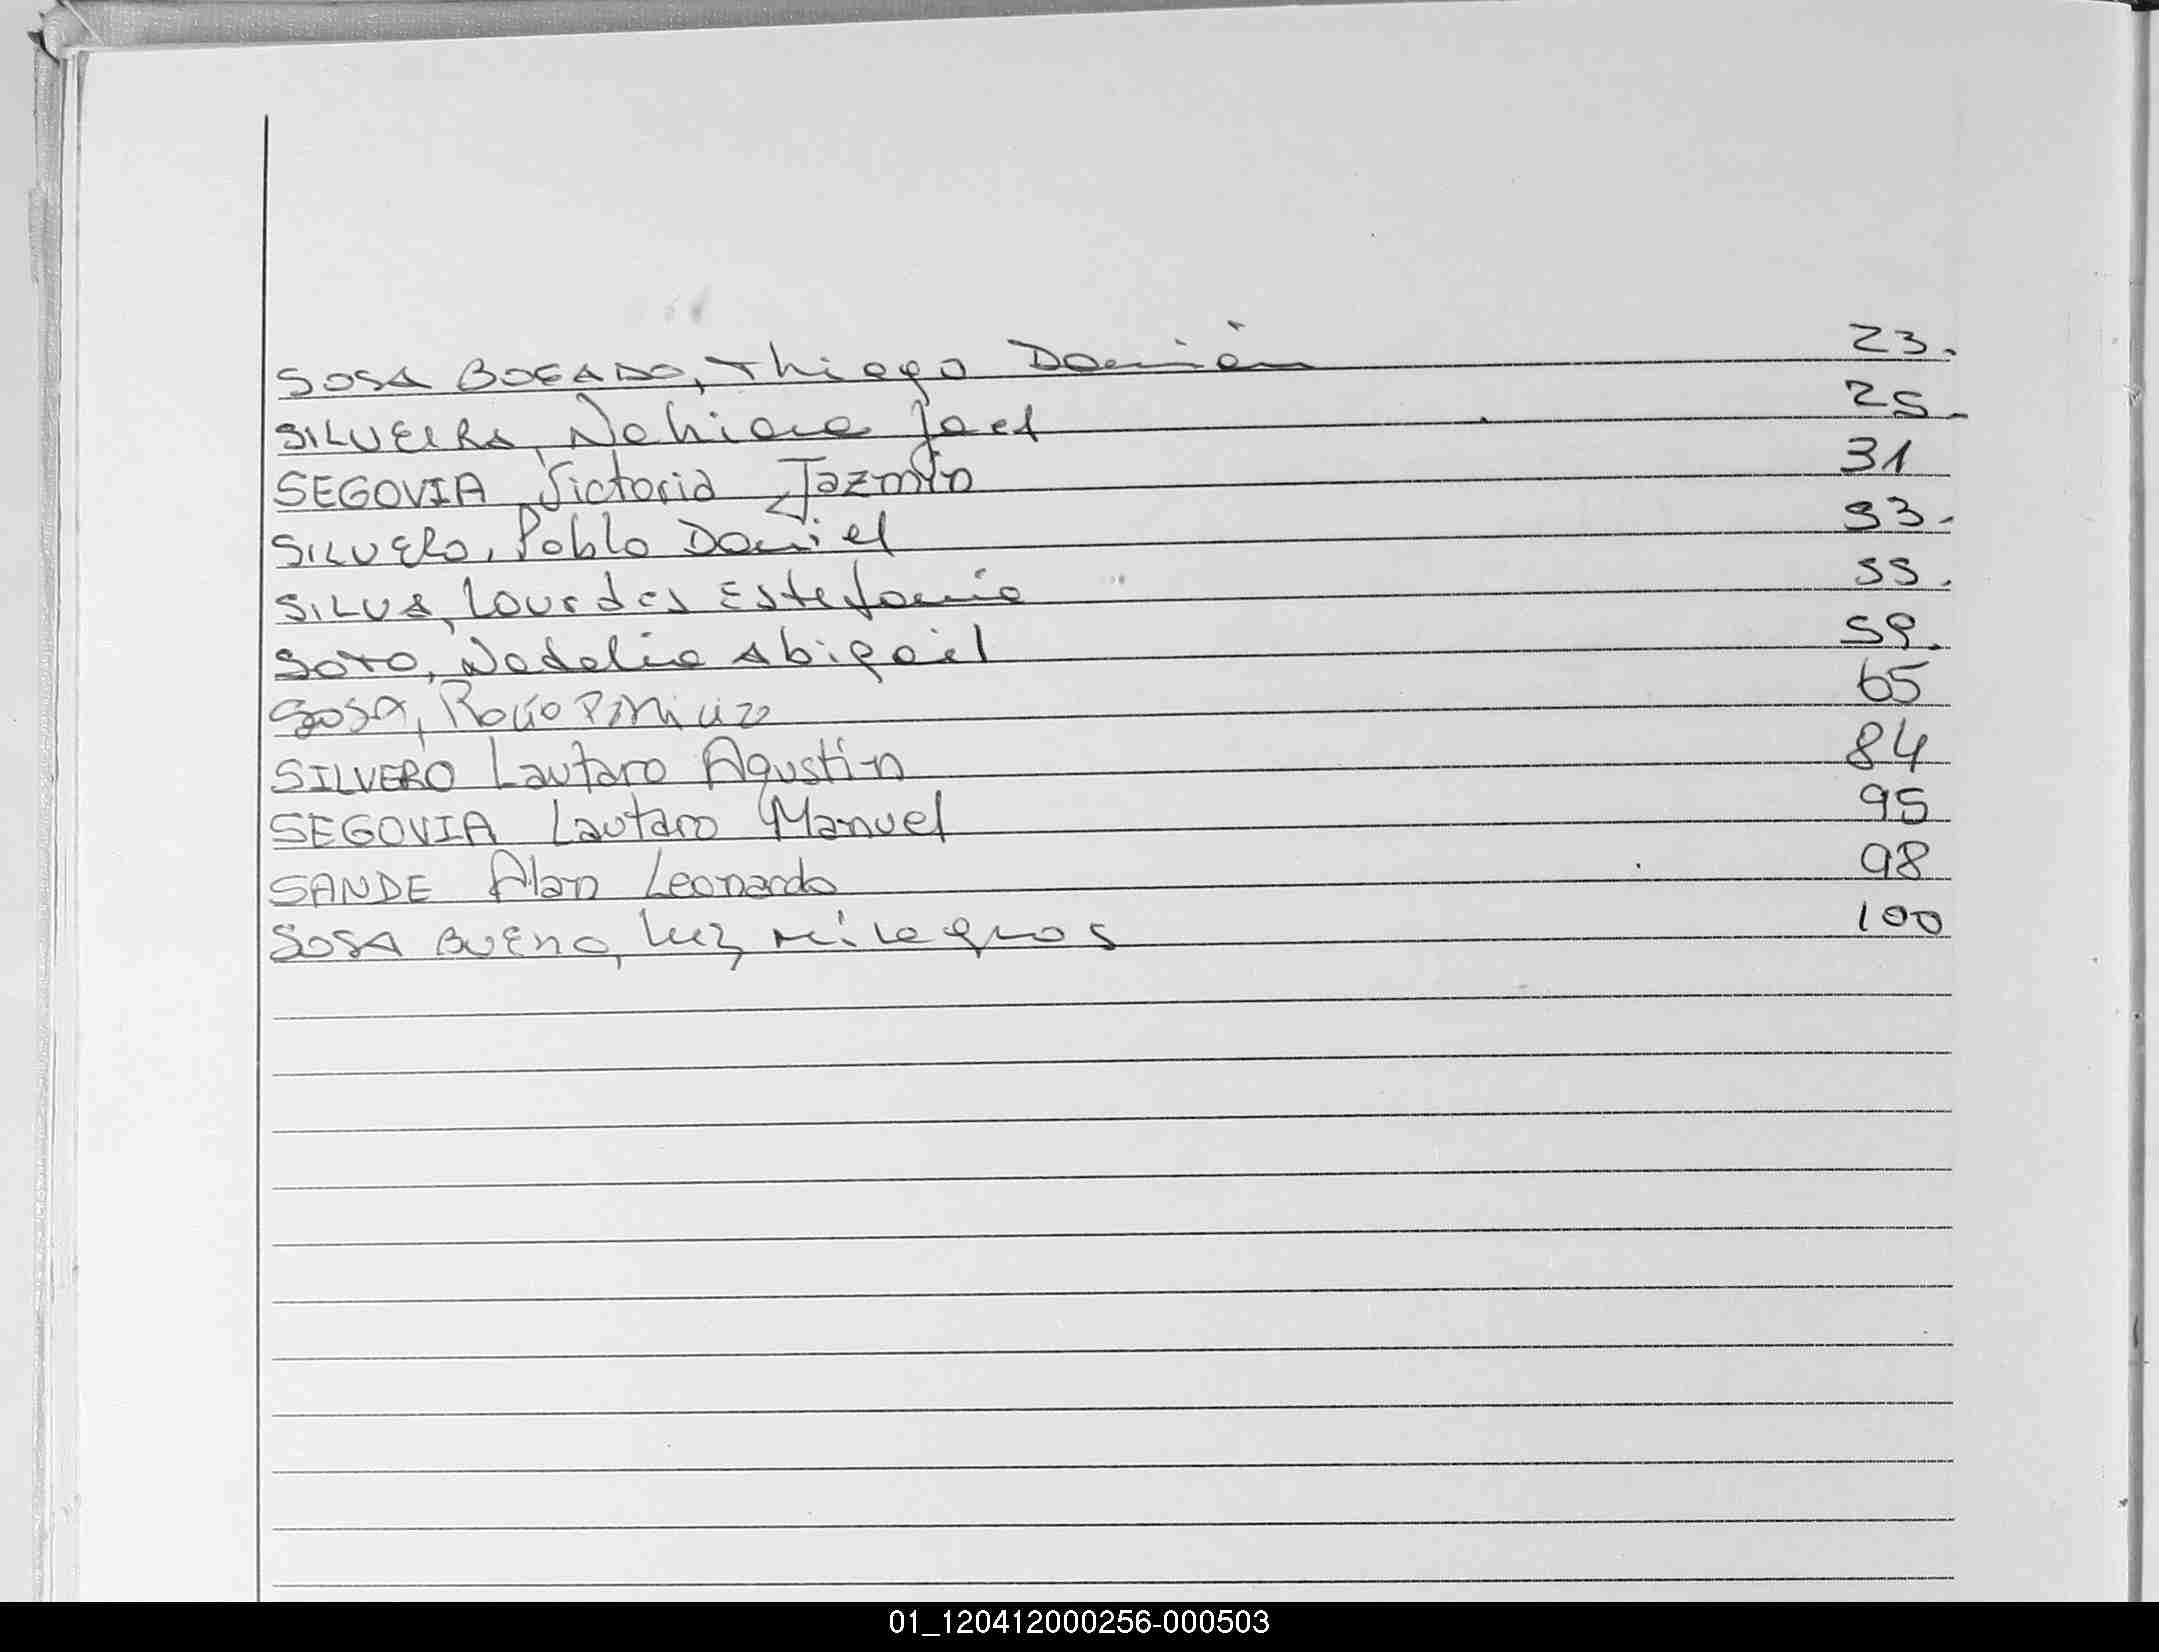 SOSA BOGADO, Thiago Damián 23.
SILVEIRA, Nahiara Jael 25.
SEGOVIA, Victoria Jazmín 31
SILVERO, Pablo Daniel 33.
SILVA, Lourdes Estefania 55.
SOTO, Nadelia Abigail 59.
SOSA, Rocío 65
SILVERO Lautaro Agustín 84
SEGOVIA Lautaro Manuel 95
SANDE Alan Leonardo 98
SOSA BUENO, Luz Milagros 100
01_120412000256-000503